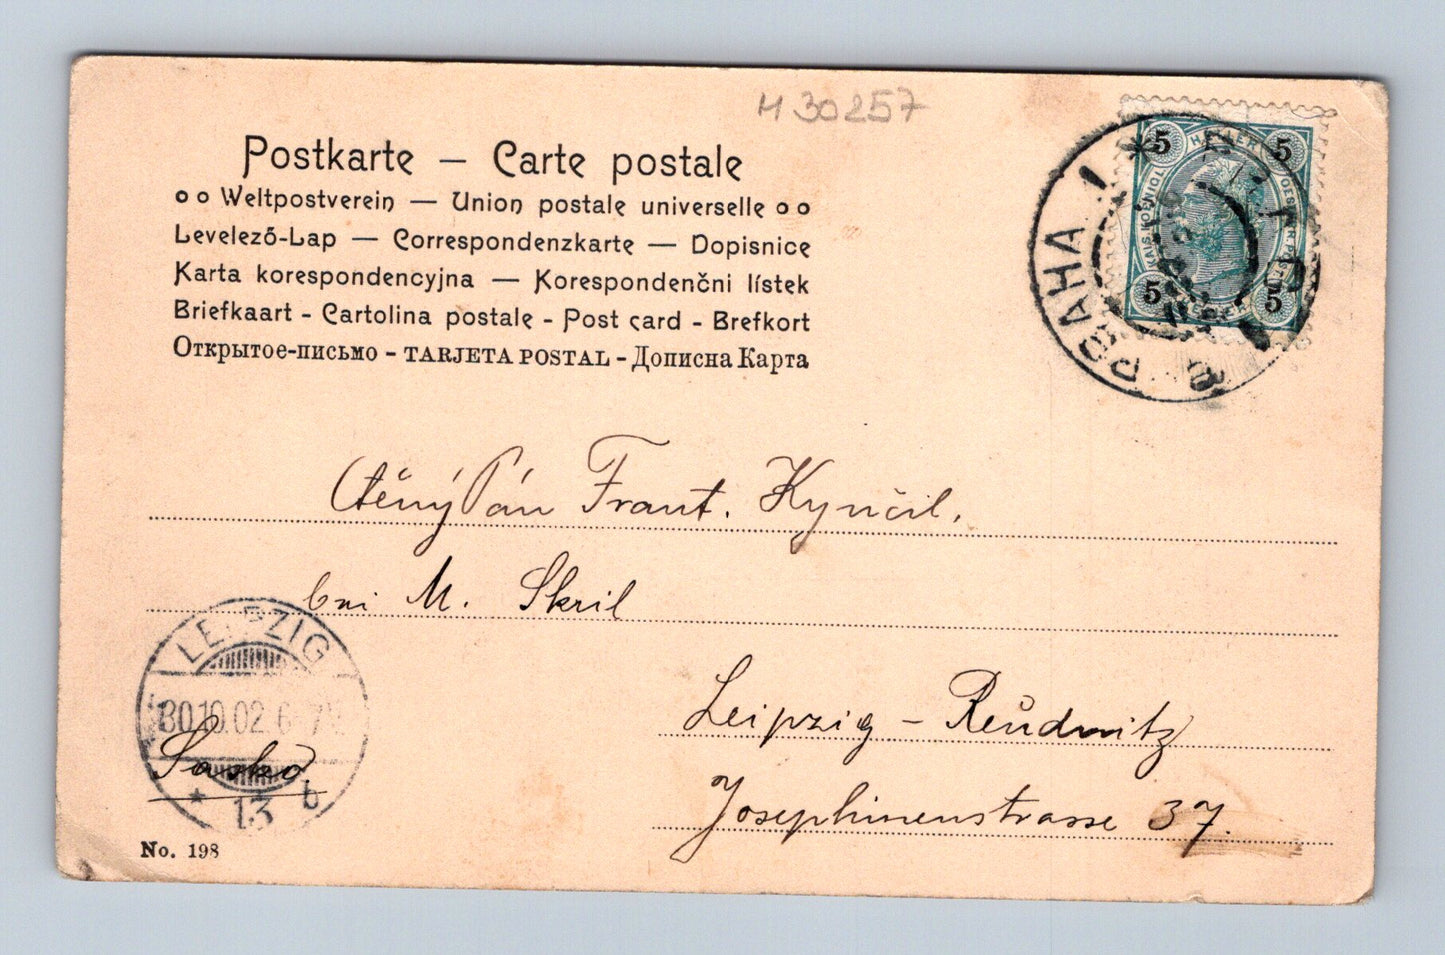 H 30257
Postkarte – Carte postale
Weltpostverein — Union postale universelle
Levelező-Lap — Correspondenzkarte — Dopisnice
Karta korespondencyjna — Korespondenčni lístek
Briefkaart - Cartolina postale - Post card - Brefkort
Открытое-письмо - TARJETA POSTAL - Дописна Карта
5 5
5 5
PRAHA 1 *
Ctěný Pán Frant. Kynčil.
bei M. Skřil
LEIPZIG
30.10.02.6-7
* 13 b
Leipzig – Reudnitz
Sasko.
Josephinenstrasse 37.
No. 198